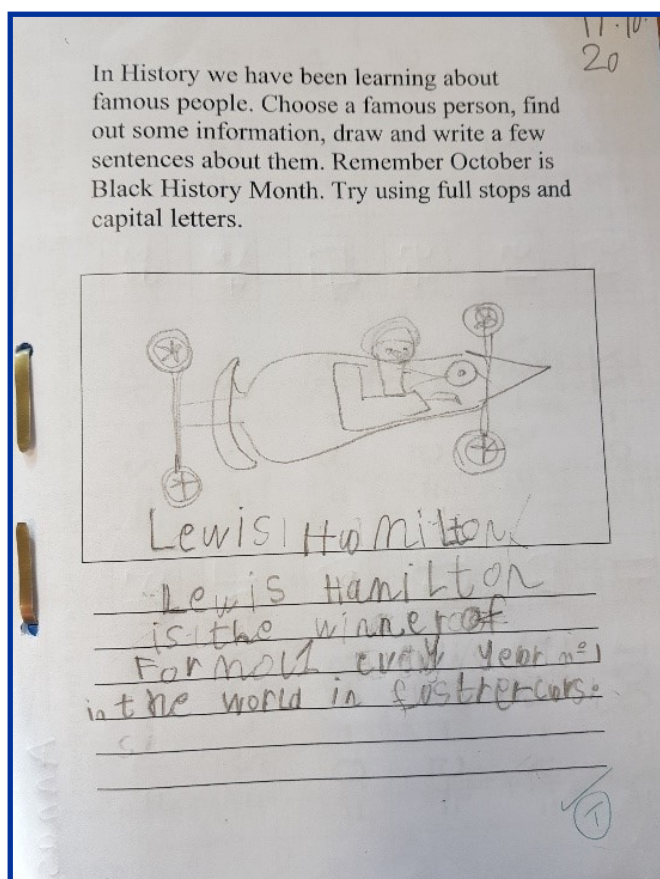 11.10.
20
In History we have been learning about
famous people. Choose a famous person, find
out some information, draw and write a few
sentences about them. Remember October is
Black History Month. Try using full stops and
capital letters.
Lewis Hamilton
Lewis Hamilton
is the winner of
every year nº1
in the world in
T